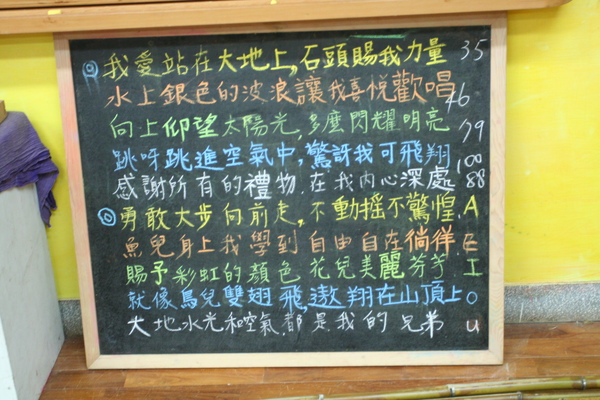 ◎我愛站在大地上,石頭賜我力量 35
水上銀色的波浪讓我喜悅歡唱 46
向上仰望太陽光,多麼閃耀明亮 79
跳呀跳進空氣中,驚訝我可飛翔 100
感謝所有的禮物.在我內心深處 88
◎勇敢大步向前走,不動搖不驚惶.A
魚兒身上我學到自由自在徜徉.E
賜予彩虹的顏色花兒美麗芬芳.I
就像鳥兒雙翅飛,遨翔在山頂上O
大地水光和空氣.都是我的兄弟 u